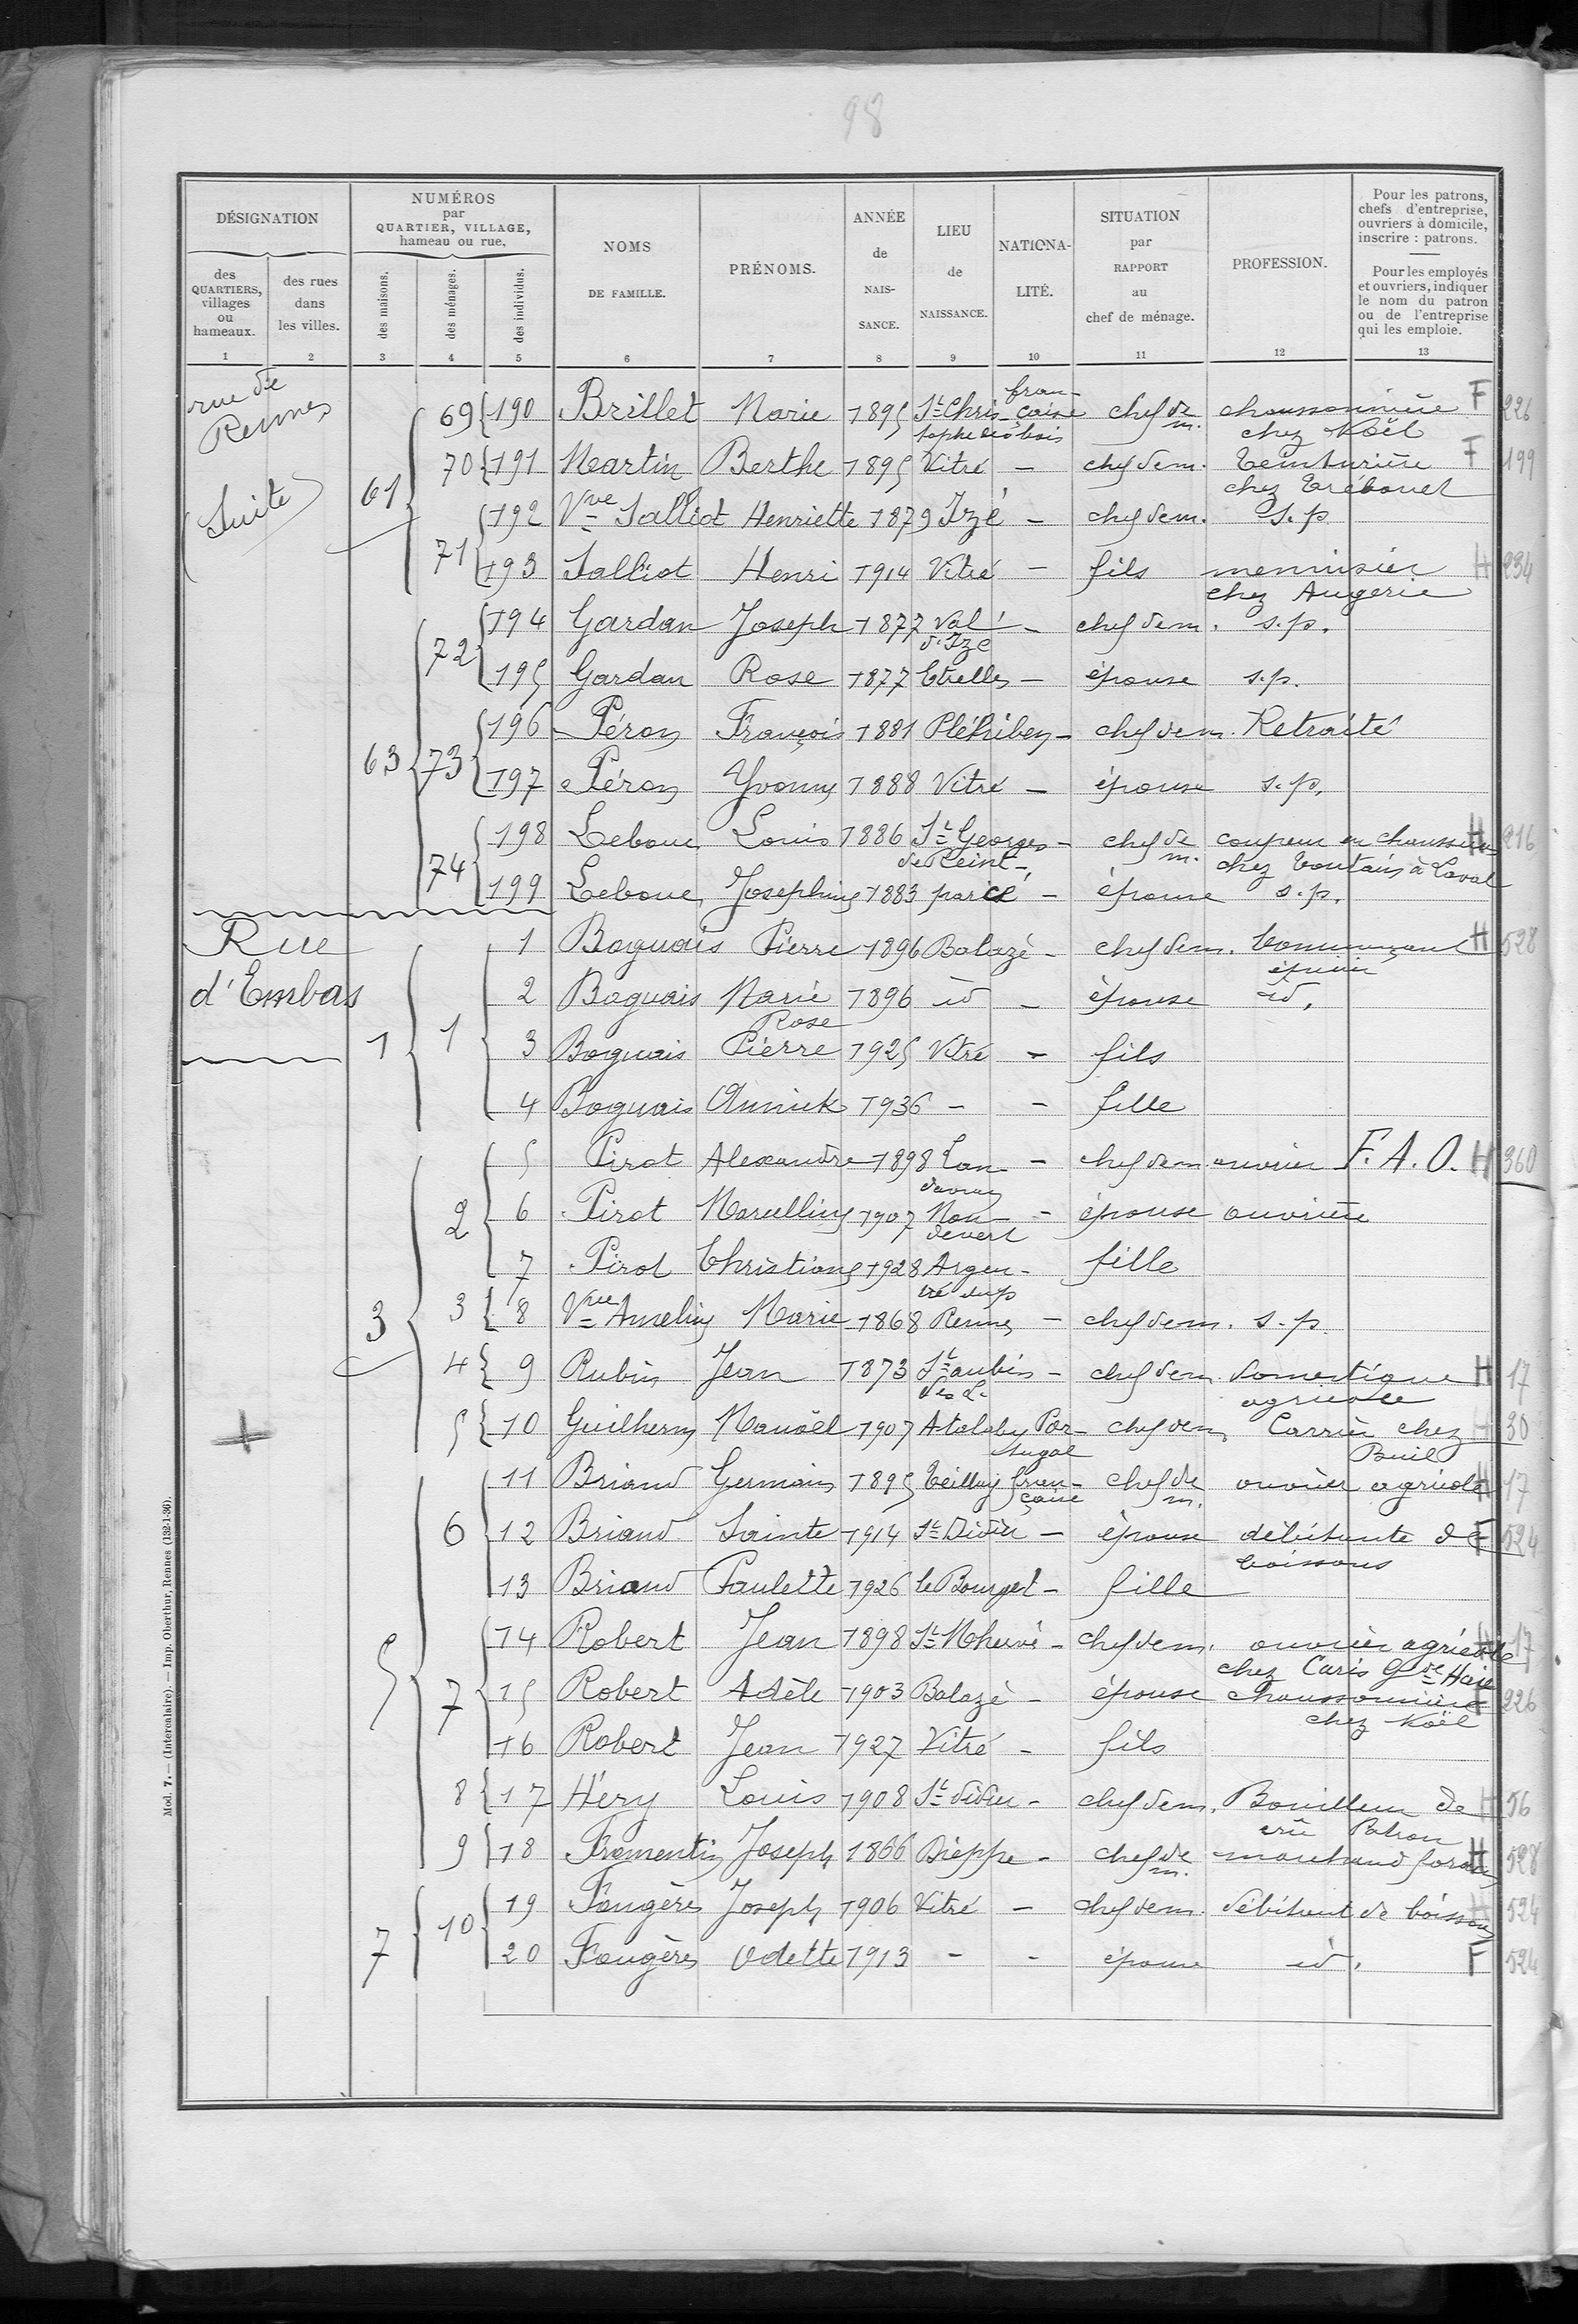 98
DÉSIGNATION
des QUARTIERS, villages ou hameaux.
des rues dans les villes.
NUMÉROS par QUARTIER, VILLAGE, hameau ou rue.
des maisons.
des ménages.
des individus.
NOMS DE FAMILLE.
PRÉNOMS.
ANNÉE de NAISSANCE.
LIEU de NAISSANCE.
NATIONALITÉ.
SITUATION par RAPPORT au chef de ménage.
PROFESSION.
Pour les patrons, chefs d'entreprise, ouvriers à domicile, inscrire : patrons.
Pour les employés et ouvriers, indiquer le nom du patron ou de l'entreprise qui les emploie.
1 2 3 4 5 6 7 8 9 10 11 12 13
rue de Rennes (Suite)
61
69 190 Brillet Marie 1895 St Christophe des bois française chef de m. chaussonnière chez Noël F 226
70 191 Martin Berthe 1895 Vitré - chef de m. teinturière chez Trébouet F 199
71 192 Vve Salliot Henriette 1879 Izé - chef de m. s.p.
193 Salliot Henri 1914 Vitré - fils menuisier chez Augerie H 234
63
72 194 Gardan Joseph 1877 Val d'Izé - chef de m. s.p.
195 Gardan Rose 1877 Etrelles - épouse s.p.
73 196 Péron François 1881 Pléhiben - chef de m. Retraité
197 Péron Yvonne 1888 Vitré - épouse s.p.
74 198 Lebouc Louis 1886 St Georges de Reint- - chef de m. coupeur en chaussures chez Toutain à Laval H 216
199 Lebouc Josephine 1883 parcé - épouse s.p.
Rue d'Embas
1 1
1 Boguais Pierre 1896 Balazé - chef de m. Commerçant épicier H 528
2 Boguais Marie Rose 1896 id - épouse id.
3 Boguais Pierre 1925 Vitré - fils
4 Boguais Annick 1936 - - fille
3
2 5 Pirot Alexandre 1898 Landavran - chef de m. ouvrier F.A.O. H 360
6 Pirot Marcelline 1907 Moudevert - épouse ouvrière
7 Pirot Christiane 1928 Argentré du p fille
3 8 Vve Ameline Marie 1868 Rennes - chef de m. s.p.
4 9 Rubin Jean 1873 St aubin des L. - chef de m. domestique agricole H 17
5 10 Guilherm Manoël 1907 Atalaby Portugal chef de m. Carrier chez Buil H 30
5
6 11 Briand Germain 1895 Teillay française chef de m. ouvrier agricole H 17
12 Briand Sainte 1914 St Didier - épouse débitante de boissons F 524
13 Briand Paulette 1926 le Bourget - fille
7 14 Robert Jean 1898 St Mhervé - chef de m. ouvrier agricole chez Caris Gde Haie H 17
15 Robert Adèle 1903 Balazé - épouse chaussonnière chez Noël 226
16 Robert Jean 1927 Vitré - fils
8 17 Héry Louis 1908 St Didier - chef de m. Bouilleur de cru Patron H 56
9 18 Fromentin Joseph 1866 Dieppe - chef de m. marchand forain H 528
7
10 19 Fougères Joseph 1906 Vitré - chef de m. débitant de boissons H 524
20 Fougères Odette 1913 - - épouse id. F 524
Mod. 7. — (Intercalaire). — Imp. Oberthur, Rennes (132-1-36).